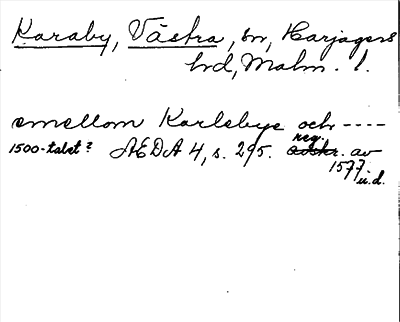 Karaby, Västra, sn, Harjagers
hd, Malm. l.
emellom Karlsbye och ----
1500-talet? AEDA 4, s. 295. reg. av
1577 u.d.